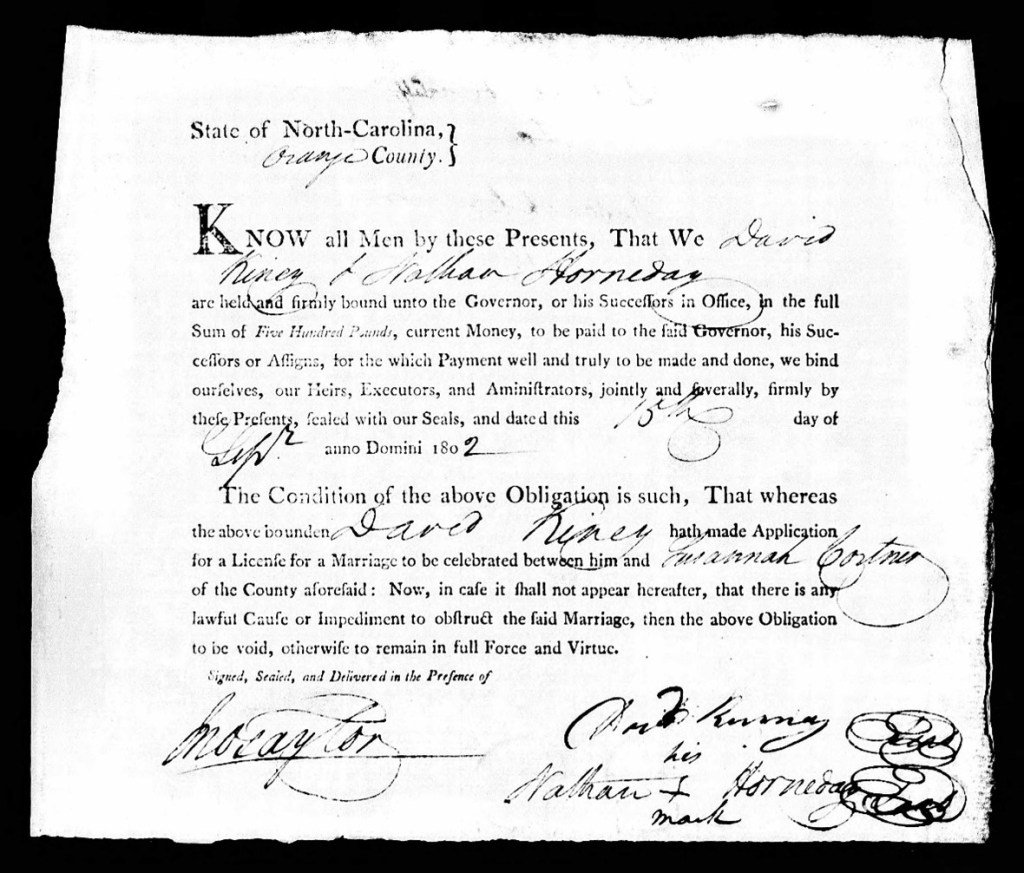 State of North-Carolina,
Orange County.
KNOW all Men by these Presents, That We David
Kiney & Nathan Horneday
are held and firmly bound unto the Governor, or his Succeſſors in Office, in the full
Sum of Five Hundred Pounds, current Money, to be paid to the ſaid Governor, his Suc-
ceſſors or Aſſigns, for the which Payment well and truly to be made and done, we bind
ourſelves, our Heirs, Executors, and Aminiſtrators, jointly and ſeverally, firmly by
theſe Preſents, ſealed with our Seals, and dated this 15th day of
Sepr. anno Domini 1802
The Condition of the above Obligation is such, That whereas
the above bounden David Kiney hath made Application
for a Licenſe for a Marriage to be celebrated between him and Susannah Cortner
of the County aforeſaid: Now, in caſe it ſhall not appear hereafter, that there is any
lawful Cauſe or Impediment to obſtruct the ſaid Marriage, then the above Obligation
to be void, otherwiſe to remain in full Force and Virtue.
Signed, Sealed, and Delivered in the Presence of
Jno Taylor
David Seal
his
Nathan + Horneday Seal
mark